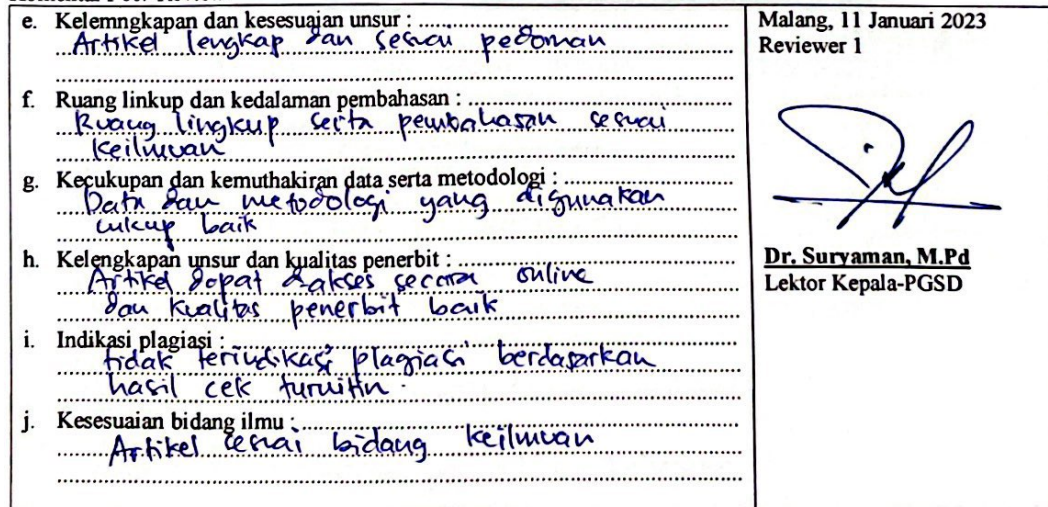 e. Kelemngkapan dan kesesuaian unsur :
Artikel lengkap dan sesuai pedoman
f. Ruang linkup dan kedalaman pembahasan :
Ruang lingkup serta pembahasan sesuai
keilmuan
g. Kecukupan dan kemuthakiran data serta metodologi :
Data dan metodologi yang digunakan
cukup baik
h. Kelengkapan unsur dan kualitas penerbit :
Artikel dapat diakses secara online
dan kualitas penerbit baik
i. Indikasi plagiasi :
tidak terindikasi plagiasi berdasarkan
hasil cek turnitin.
j. Kesesuaian bidang ilmu :
Artikel sesuai bidang keilmuan
Malang, 11 Januari 2023
Reviewer 1
Dr. Suryaman, M.Pd
Lektor Kepala-PGSD